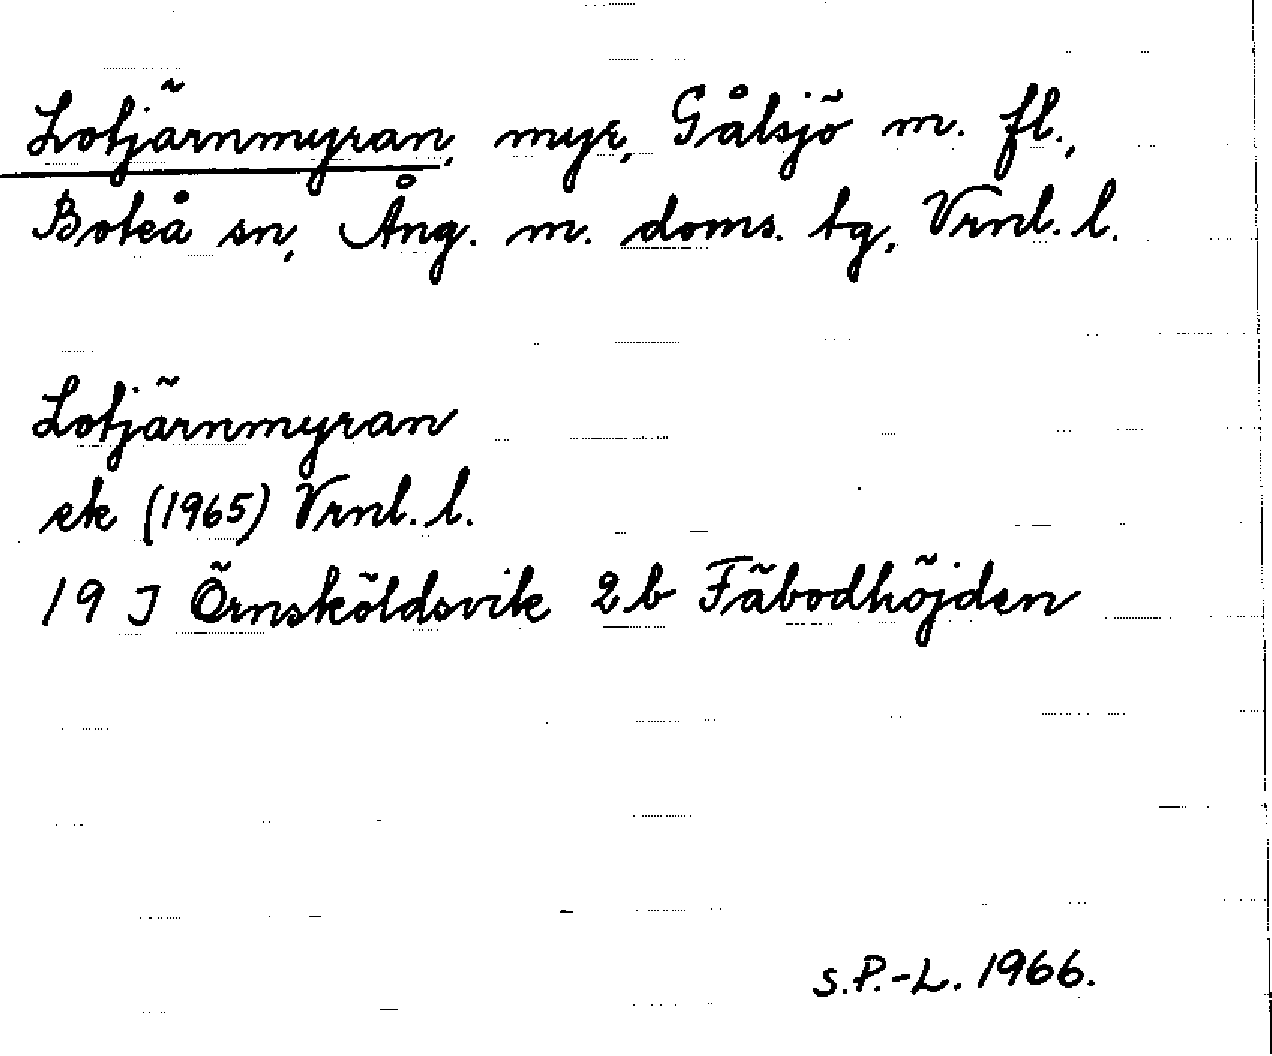 Lotjärnmyran, myr, Gålsjö m. fl.,
Boteå sn, Ång. m. doms. tg, Vrnl. l.
Lotjärnmyran
ek (1965) Vrnl. l.
19 J Örnsköldsvik 2b Fäbodhöjden
S.P.-L. 1966.